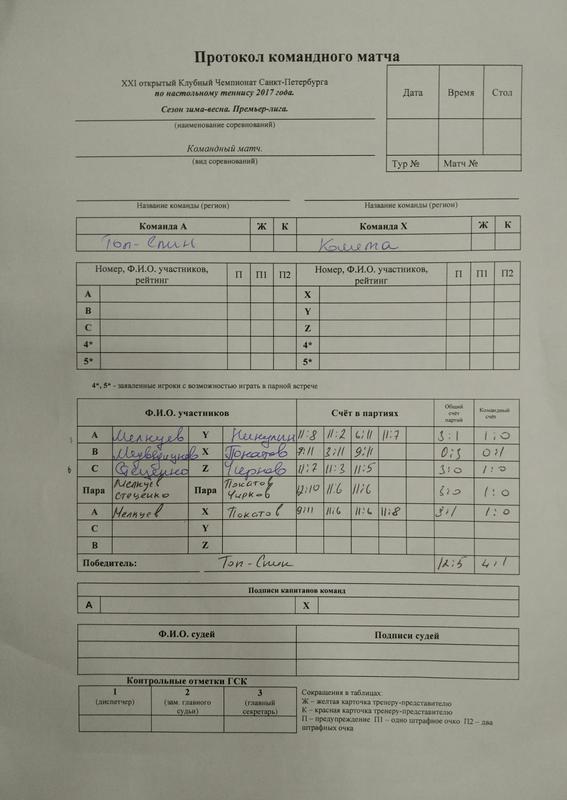 Протокол командного матча
XXI открытый Клубный Чемпионат Санкт-Петербурга
по настольному теннису 2017 года.
Сезон зима-весна. Премьер-лига.
(наименование соревнований)
Командный матч.
(вид соревнований)
Дата Время Стол
Тур № Матч №
Название команды (регион) Название команды (регион)
Команда А Ж К Команда Х Ж К
Топ-Спин Комета
Номер, Ф.И.О. участников, рейтинг П П1 П2 Номер, Ф.И.О. участников, рейтинг П П1 П2
A X
B Y
C Z
4* 4*
5* 5*
4*, 5* - заявленные игроки с возможностью играть в парной встрече
Ф.И.О. участников Счёт в партиях Общий счёт партий Командный счёт
A Мелкуев Y Никулин 11:8 11:2 6:11 11:7 3:1 1:0
B X Покатов 7:11 3:11 9:11 0:3 0:1
C Стеценко Z 11:7 11:3 11:5 3:0 1:0
Пара Мелкуев Стеценко Пара Покатов Чирков 12:10 11:6 11:6 3:0 1:0
A Мелкуев X Покатов 9:11 11:6 11:6 11:8 3:1 1:0
C Y
B Z
Победитель: Топ-Спин 12:5 4:1
Подписи капитанов команд
А Х
Ф.И.О. судей Подписи судей
Контрольные отметки ГСК
1 2 3
(диспетчер) (зам. главного судьи) (главный секретарь)
Сокращения в таблицах:
Ж – желтая карточка тренеру-представителю
К – красная карточка тренеру-представителю
П – предупреждение П1 – одно штрафное очко П2 – два
штрафных очка